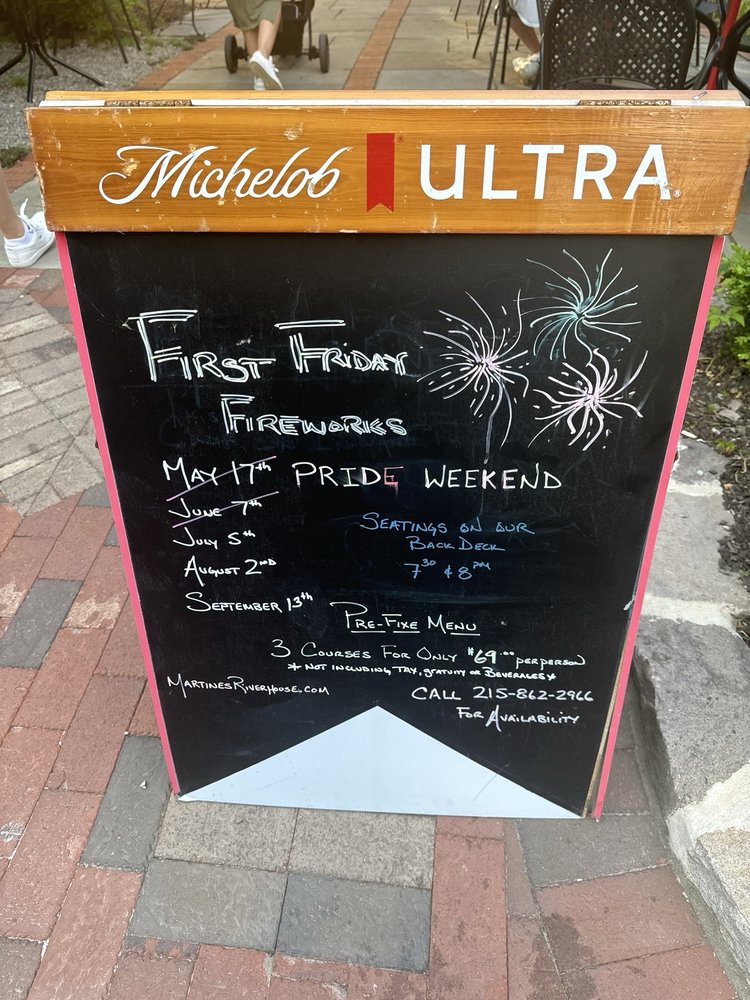 Michelob ULTRA
First Friday
Fireworks
May 17th PRIDE WEEKEND
June 7th
July 5th
August 2nd
September 13th
Seatings on our
Back Deck
7 30 & 8 pm
Pre-Fixe Menu
3 Courses For Only $69.00 per person
* not including tax, gratuity or Beverages *
MartinesRiverhouse.com
CALL 215-862-2966
For Availability